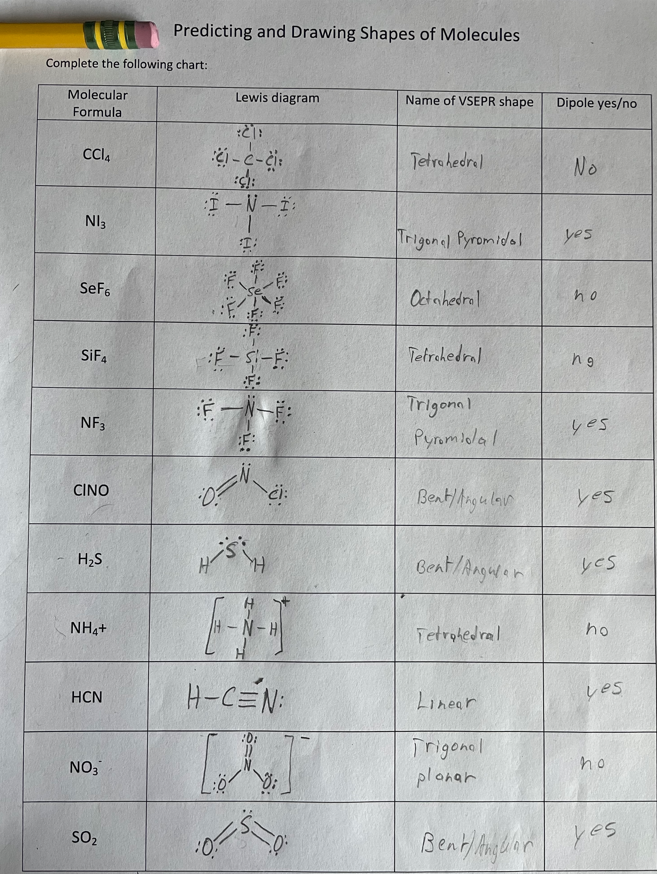 Predicting and Drawing Shapes of Molecules
Complete the following chart:
Molecular Formula Lewis diagram Name of VSEPR shape Dipole yes/no
:Cl:
CCl₄ :Cl-C-Cl: Tetrahedral No
:Cl:
NI₃ :I-N-I: Trigonal Pyramidal yes
:I:
:F:
:F F:
SeF₆ Se Octahedral no
:F F:
:F:
:F:
SiF₄ :F-Si-F: Tetrahedral no
:F:
NF₃ :F-N-F: Trigonal Pyramidal yes
:F:
ClNO :O=N-Cl: Bent/Angular yes
H₂S H S H Bent/Angular yes
H
NH₄+ [H-N-H]+ Tetrahedral no
H
HCN H-C≡N: Linear yes
:O:
NO₃⁻ [N]- Trigonal planar no
:O O:
SO₂ :O=S=O: Bent/Angular yes